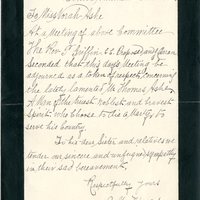 To Miss Norah Ashe
At a Meeting of above Committee
The Rev. J.
Seconded that this days Meeting be
adjourned as a token of respect concerning
the late lamented Mr Thomas Ashe
A Man of the truest noblest and bravest
Spirit who chose to die a Martyr to
serve his Country.
To his dear Sister and relatives we
tender our sincere and unfeigned sympathy
in their sad bereavement.
Respectfully Yours